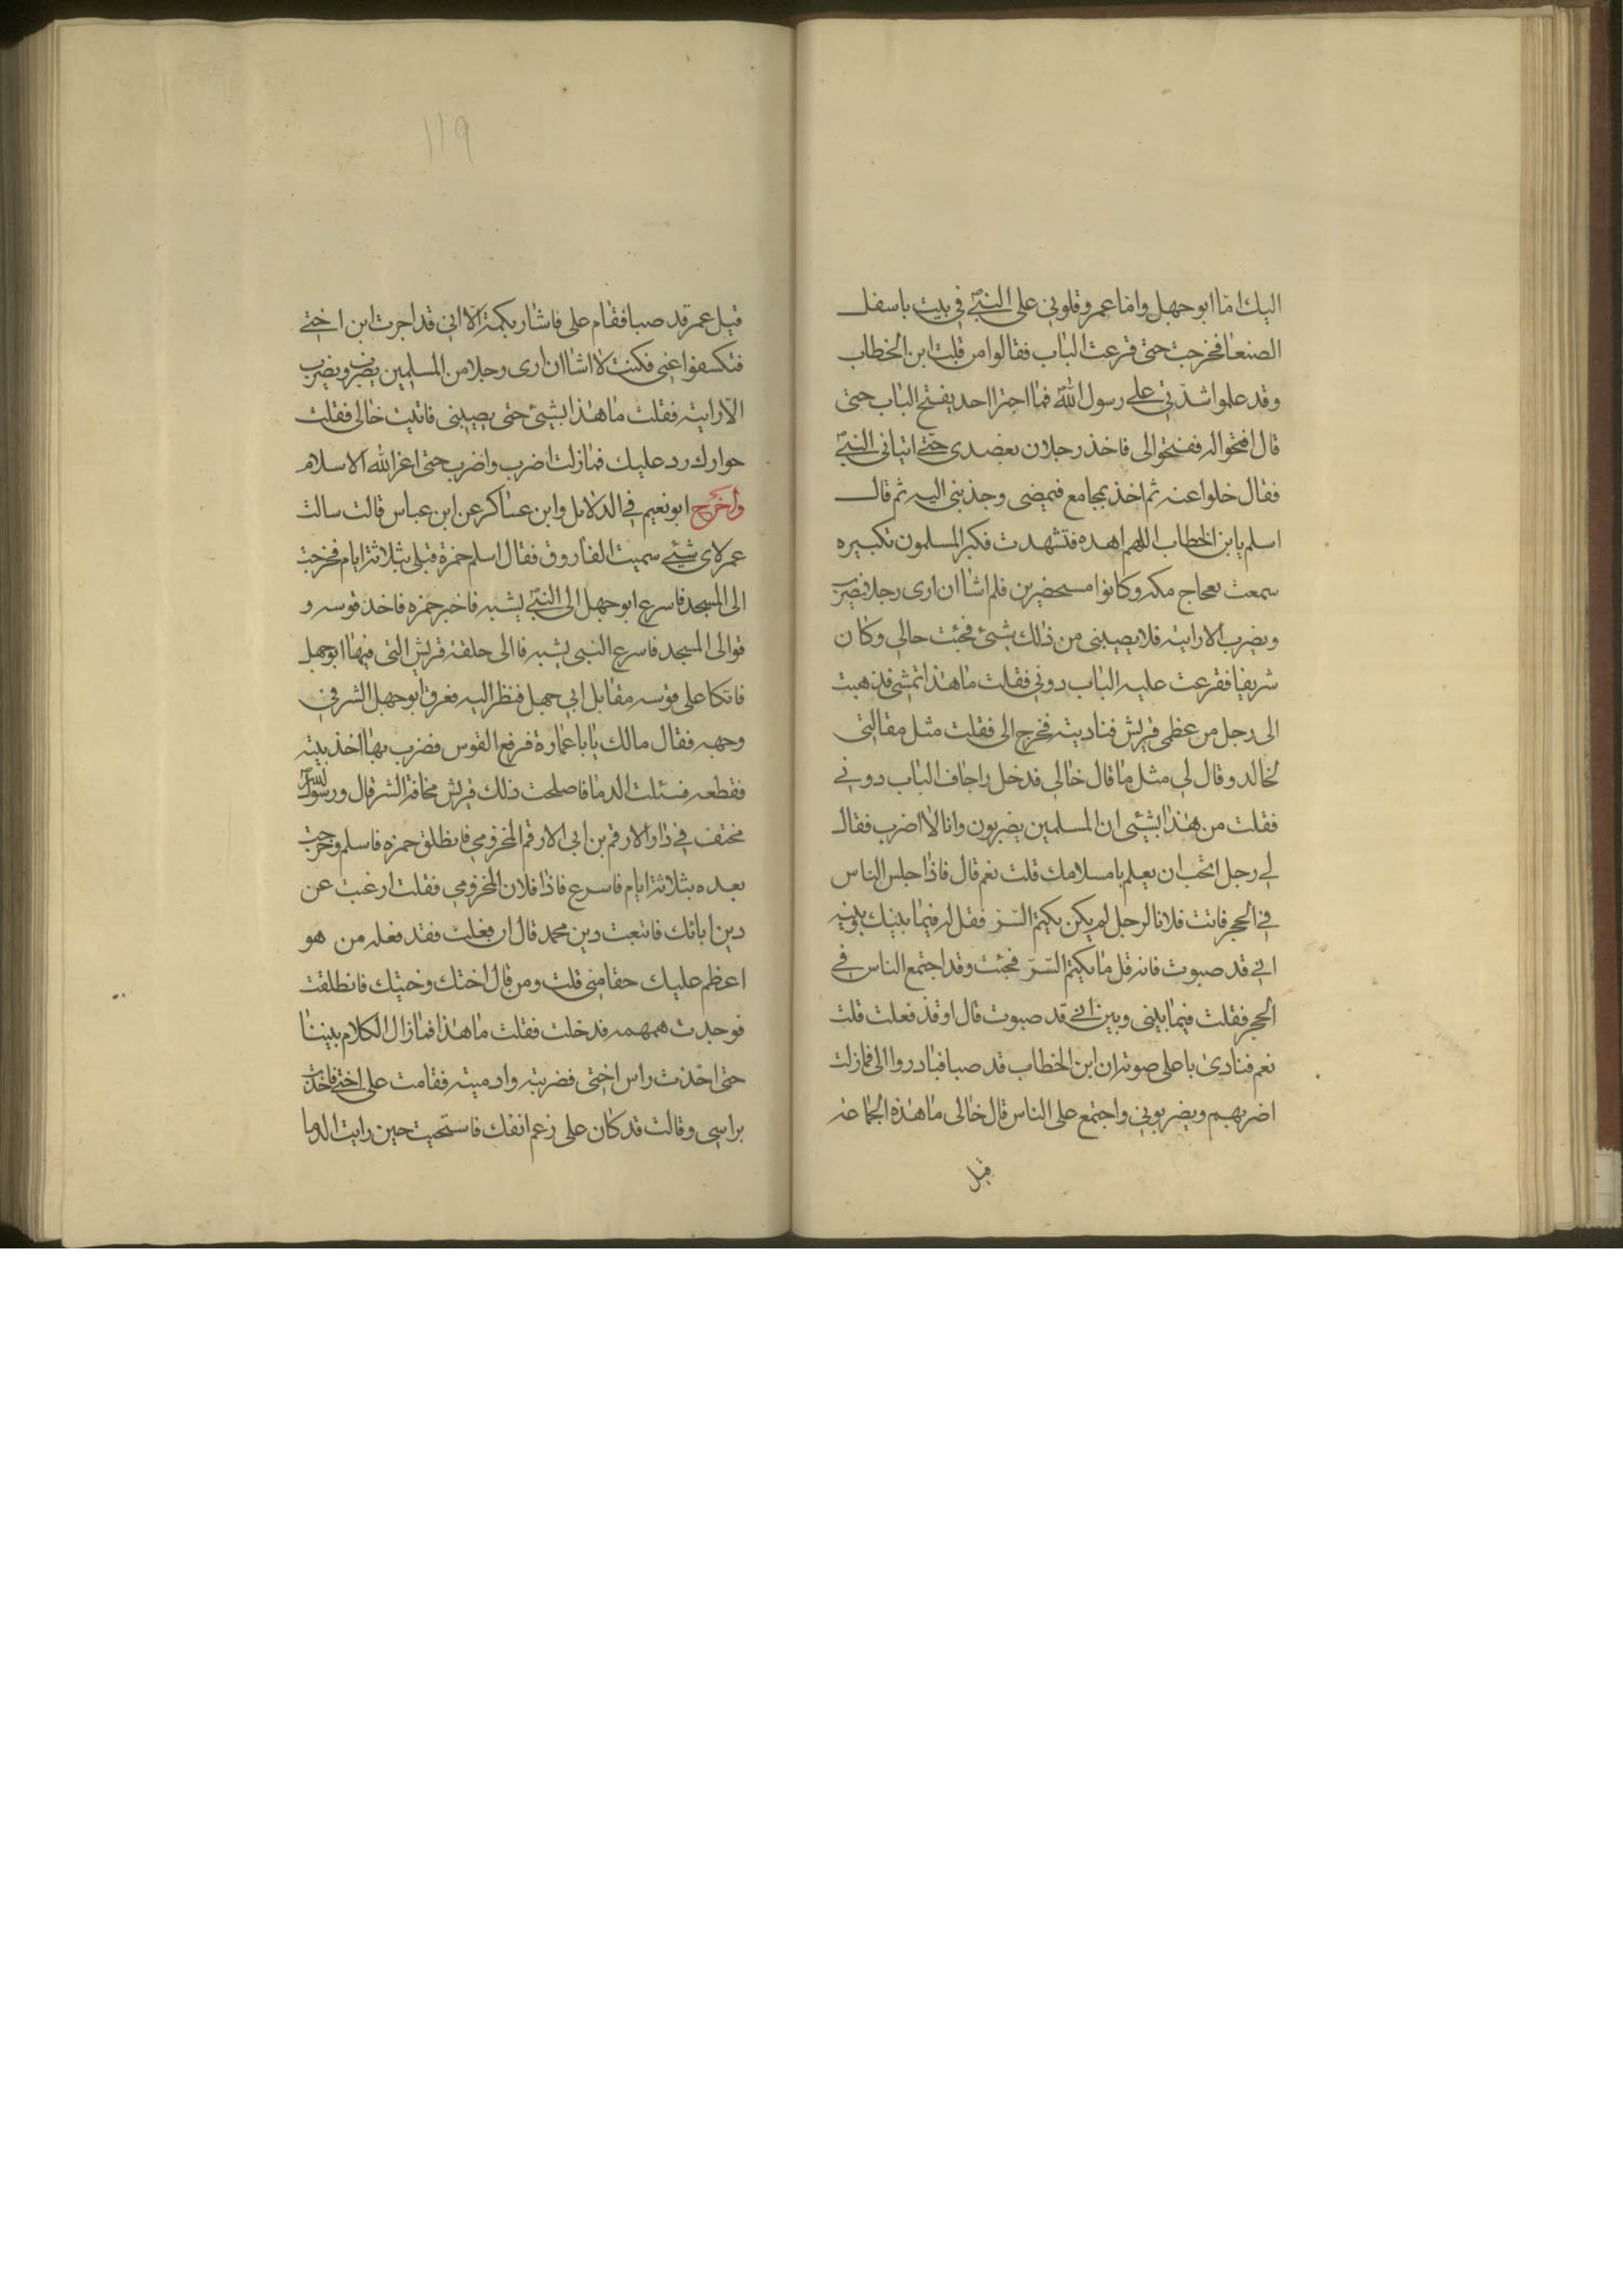 اليك امّا ابو جهل واما عمر وقلوني على النبيّ في بيت باسفل
الصنعا فخرجت حتى قرعت الباب فقالوا من قلت ابن الخطاب
وقد علموا شدّتي على رسول اللهٌ فما اجترا احد يفتح الباب حتى
قال افتحوا له ففتحوا لي فاخذ رجلان بعضدي حتى اتياني النبيّ
فقال خلوا عنه ثم اخذ بمجامع قميصي وجذبني اليه ثم قال
اسلم يا بن الخطاب اللهم اهده فتشهدت فكبر المسلمون تكبيره
سمعت بفجاج مكه وكانوا مستحضرين فلم اشا ان ارى رجلا يضرب
ويضرب الا رايته فلا يصيبني من ذلك شيئ فجئت خالي وكان
شريفا فقرعت عليه الباب دوني فقلت ما هذا تمشي فذهبت
الى رجل من عظمى قريش فناديته فخرج الى فقلت مثل مقالتي
لخالد وقال لي مثل ما قال خالي فدخل واجاف الباب دوني
فقلت من هذا بشيئ ان المسلمين يضربون وانا لا اضرب فقال
لي رجل اتحب ان يعلم باسلامك قلت نعم قال فاذا جلس الناس
في الحجر فاتت فلانا لرجل لم يكن يكتم السّر فقل له فيما بينك وبينه
اني قد صبوت فانه قل ما يكتم السّرّ فجئت وقد اجتمع الناس في
الحجر فقلت فيما بيني وبينه اني قد صبوت قال او قد فعلت قلت
نعم فنادى باعلى صوته ان ابن الخطاب قد صبا فبادروا الى فمازلت
اضربهم ويضربوني واجتمع على الناس قال خالي ما هذه الجماعه
قيل
١١٩
قيل عمر قد صبا فقام على فاشار بكمه الا اني قد اجرت ابن اختي
فتكسفوا عني فكنت لا اشا ان ارى رجلا من المسلمين يضرب ويضرب
الا رايته فقلت ما هذا بشيئ حتى يصيبني فاتيت خالي فقلت
جوارك رد عليك فمازلت اضرب واضرب حتى اعز الله الاسلام
واخرج ابو نعيم في الدلايل وابن عساكر عن ابن عباس قالت سالت
عمر لاى شيئ سميت الفاروق فقال اسلم حمزة قبلي بثلاثة ايام فخرجت
الى المسجد فاسرع ابو جهل الى النبيّ يشبه فاخبر حمزه فاخذ قوسه و
قوالى المسجد فاسرع النبي يشبه فا الى حلقة قريش التي فيها ابوجهل
فاتكا على قوسه مقابل ابي جهل فنظر اليه فعرف ابو جهل الشر في
وجهه فقال مالك يا با عمارة فرفع القوس فضرب بها اخذ بيته
فقطعه فسئلت الدما فاصلحت ذلك قريش مخافة الشر قال ورسول اللهٌ
مختف في دار الارقم بن ابي الارقم المخزومي فانطلق حمزه فاسلم وخرجت
بعده بثلاثة ايام فاسرع فاذا فلان المخزومي فقلت ارغبت عن
دين ابائك فاتبعت دين محمد قال ان فعلت فقد فعله من هو
اعظم عليك حقا مني قلت ومن قال اختك وختنك فانطلقت
فوجدت همهمه فدخلت فقلت ما هذا فما زال الكلام بيننا
حتى اخذت راس اختي فضربته وادميته فقامت على اختي فاخذت
براسي وقالت قد كان على زعم انفك فاستحيت حين رايت الدما